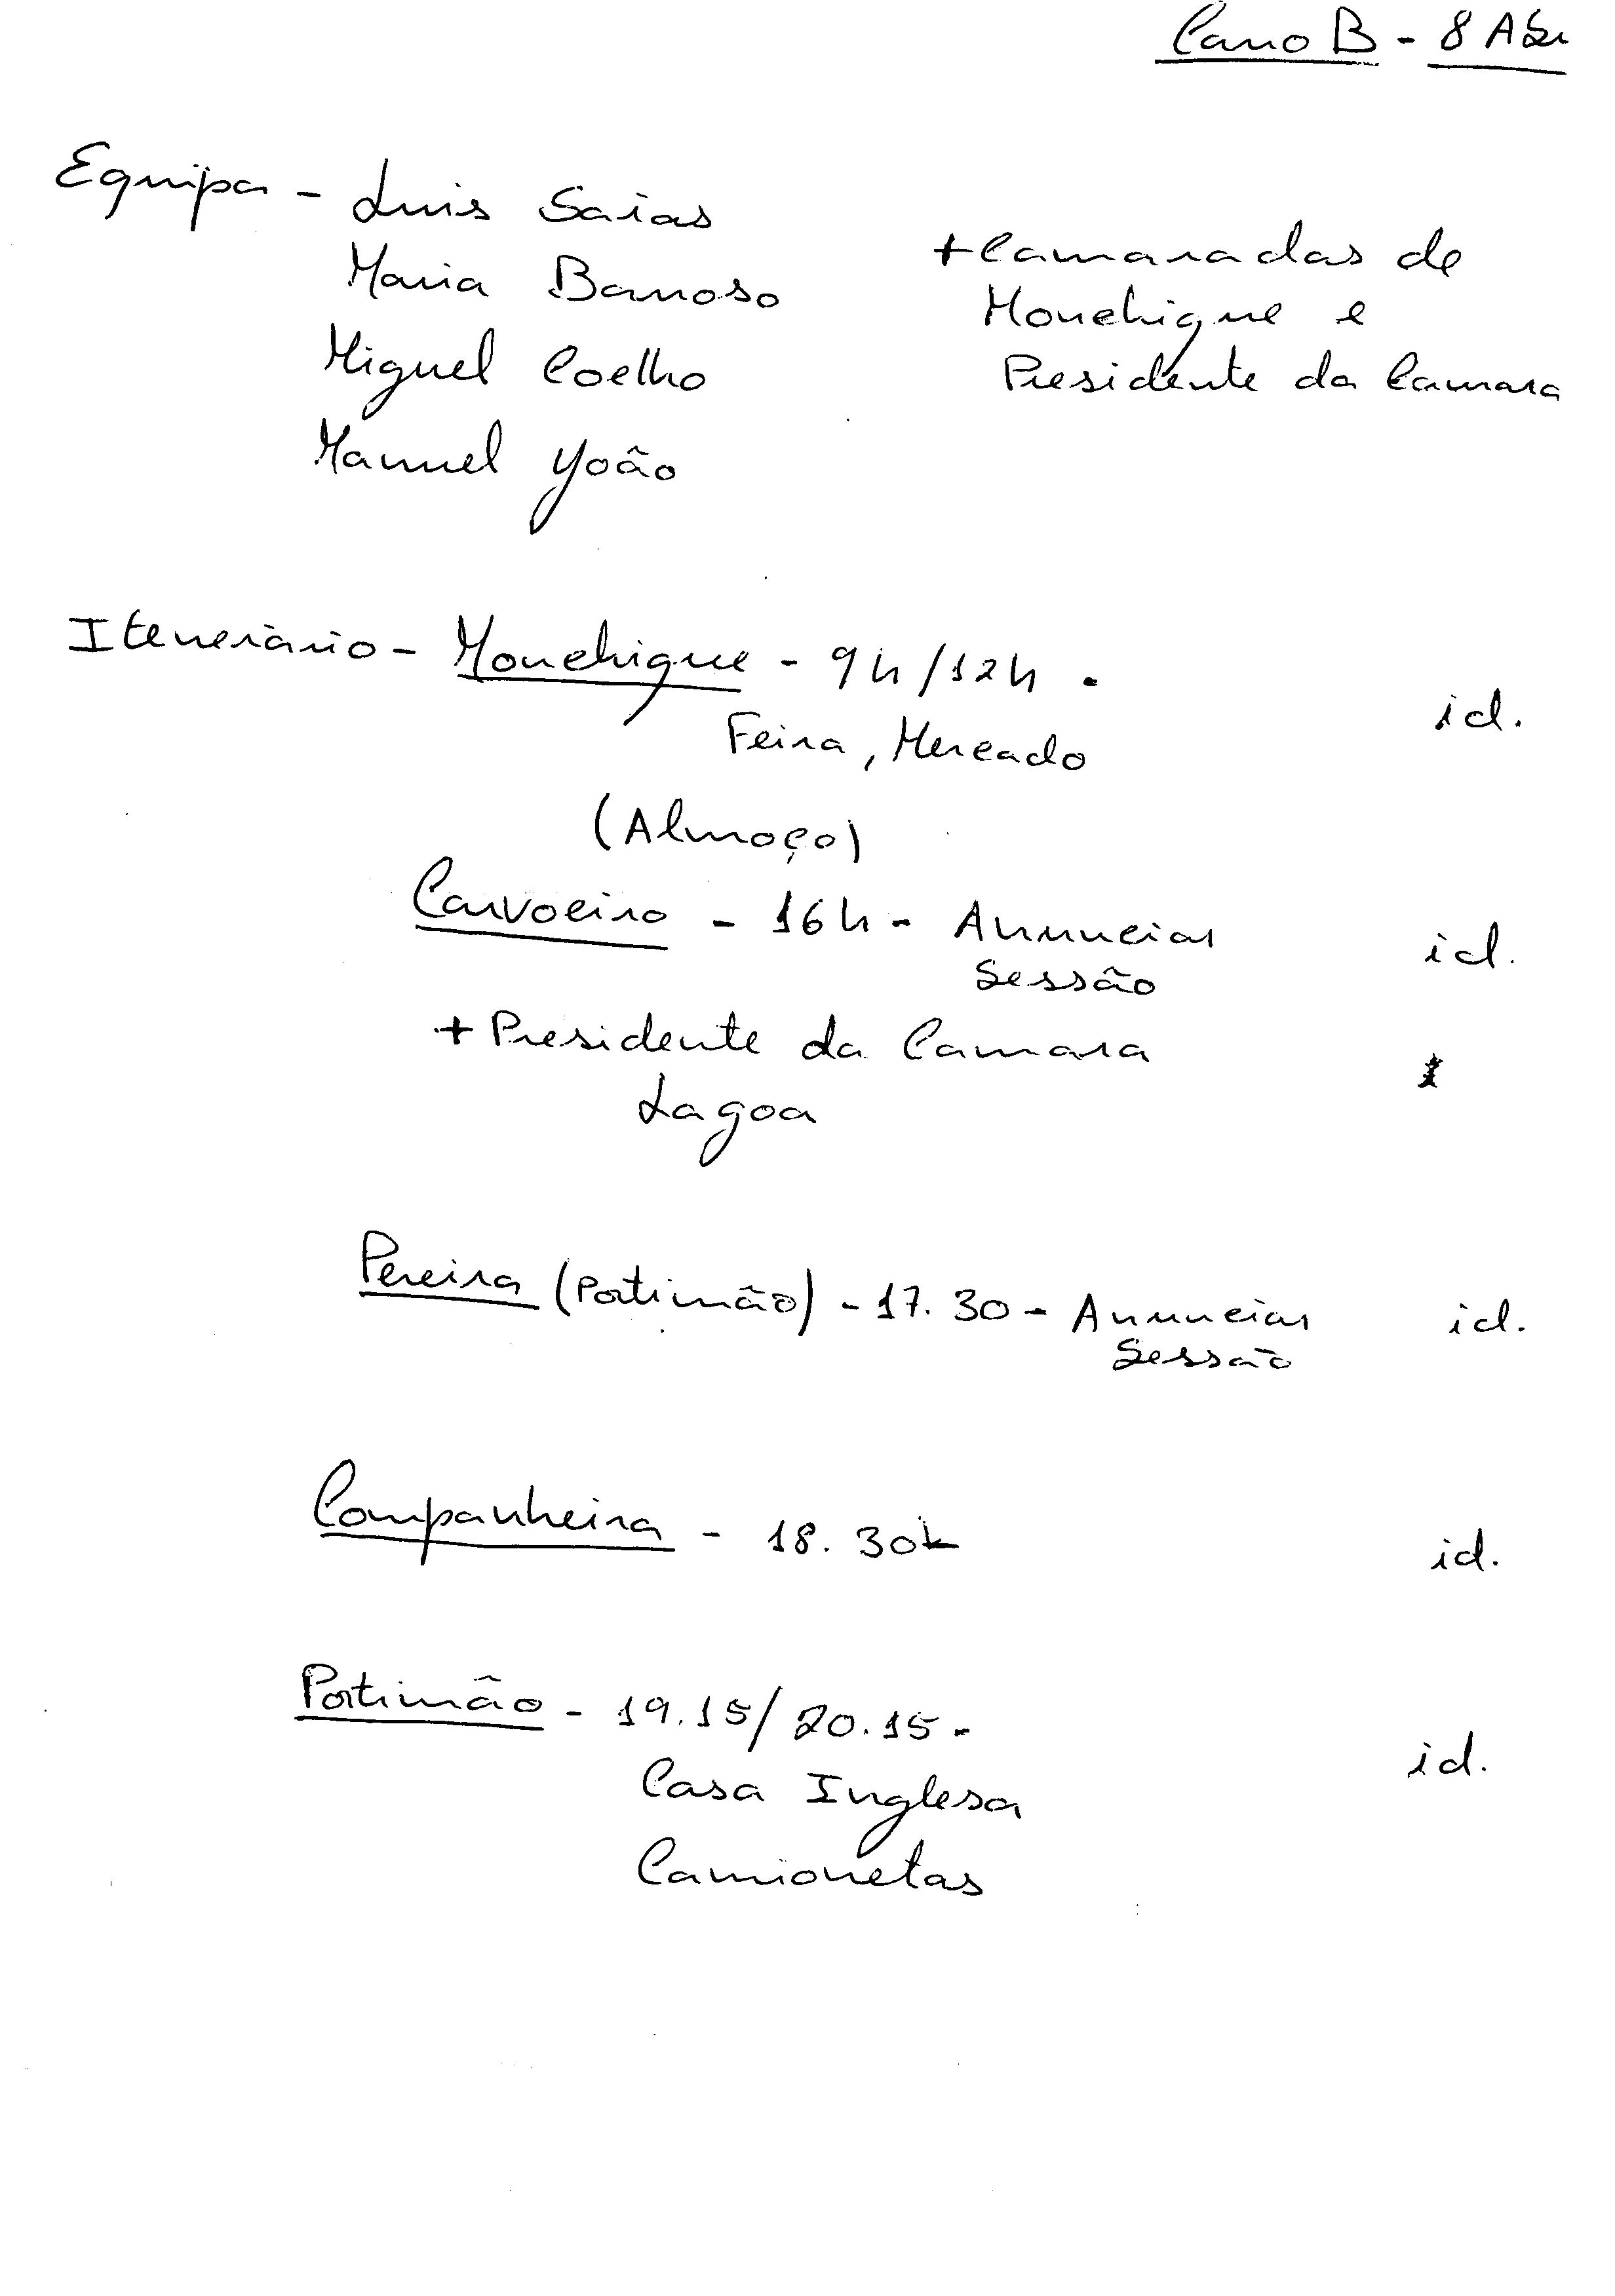 Carro B - 8 Abr
Equipa - Luis Saias
Maria Barroso
Miguel Coelho
Manuel João
+ Camaradas de
Monchique e
Presidente da Camara
Itenerário - Monchique - 9h/12h -
Feira, Mercado
id.
(Almoço)
Carvoeiro - 16h - Anunciar
Sessão
id.
+ Presidente da Camara
Lagoa
Pereira (Portimão) - 17.30 - Anunciar
Sessão
id.
Companheira - 18.30h
id.
Portimão - 19.15/20.15 -
Casa Inglesa
Camionetas
id.